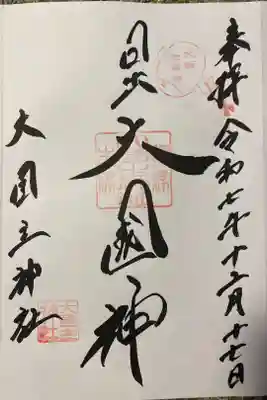 奉拝 令和七年十二月十七日
日出大國神
大国主神社